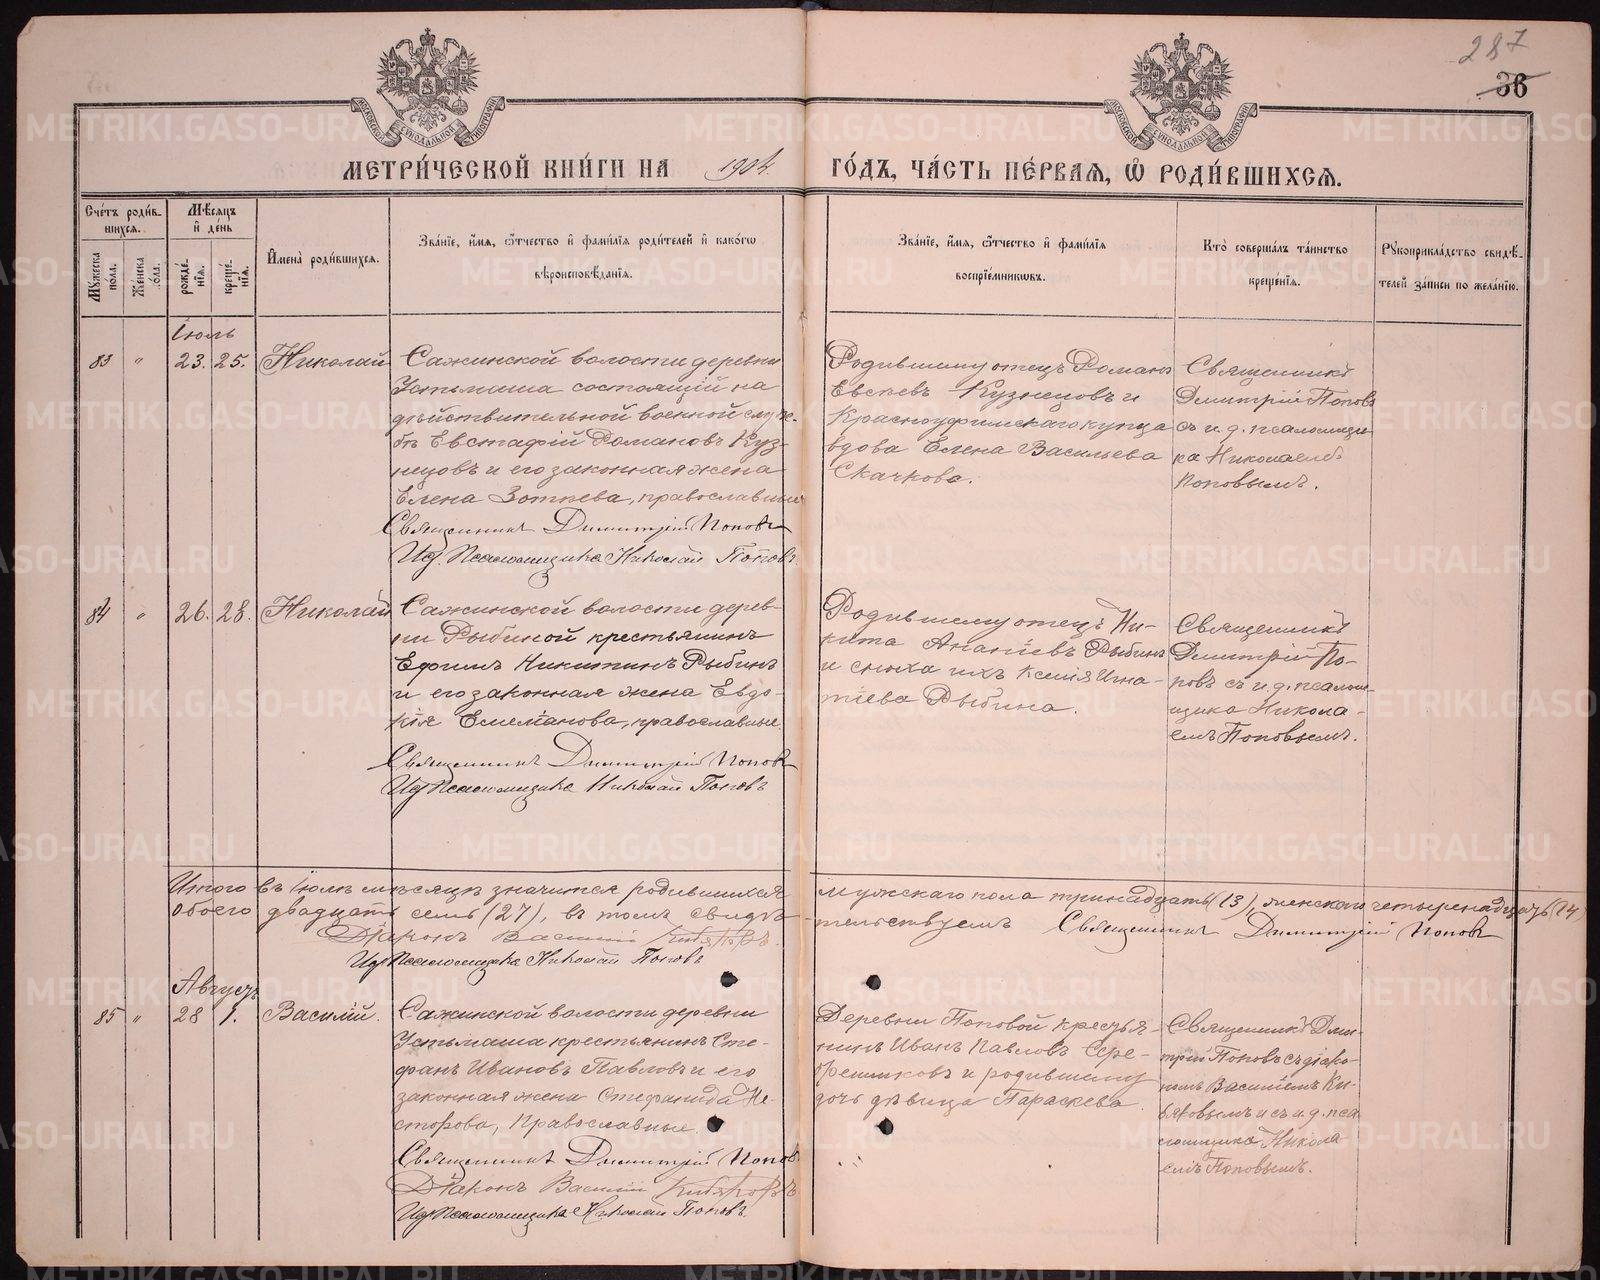 287
36
МЕТРИ́ЧЕСКОЙ КНИ́ГИ НА 1904 ГО́ДЪ, ЧА́СТЬ ПЕ́РВАЯ, Ѡ РОДИ́ВШИХСЯ.
Сче́тъ роди́в-
шихся.
Мѣ́сяцъ
и де́нь
Имена̀ роди́вшихся.
Зва́нїе, и́мя, ѻ҆́тчество и фами́лїя роди́телей и како́гѡ
вѣроисповѣ́данїя.
Зва́нїе, и́мя, ѻ҆́тчество и фами́лїя
воспрїе́мниковъ.
Кто̀ соверша́лъ та́инство
креще́нїя.
Рукоприкла́дство свидѣ́-
телей за́писи по жела́нїю.
Му́жеска
по́ла.
Же́нска
по́ла.
рожде́-
нїя.
креще́-
нїя.
Іюль
83 " 23. 25. Николай
Сажинской волости деревни
Устьмаша состоящій на
дѣйствительной военной служ-
бѣ Евстафій Романовъ Куз-
нецовъ и его законная жена
Елена Зотѣева, православные
Священникъ Димитрій Поповъ
Ид. Псаломщика Николай Поповъ.
Родившему отецъ Романъ
Евсѣевъ Кузнецовъ и
Красноуфимскаго купца
вдова Елена Васильева
Скачкова.
Священникъ
Дмитрій Поповъ
съ и. д. псаломщи-
ка Николаемъ
Поповымъ.
84 " 26. 28. Николай
Сажинской волости дерев-
ни Рыбиной крестьянинъ
Ефимъ Никитинъ Рыбинъ
и его законная жена Евдо-
кія Емеліанова, православные
Священникъ Димитрій Поповъ
Ид Псаломщика Николай Поповъ
Родившему отецъ Ни-
кита Ананіевъ Рыбинъ
и сноха ихъ Ксенія Игна-
тіева Рыбина.
Священникъ
Дмитрій По-
повъ съ и. д. псалом-
щика Никола-
емъ Поповымъ.
Итого въ Іюлѣ мѣсяцѣ значится родившихся мужскаго пола тринадцать (13), женскаго четырнадцать (14)
обоего двадцать семь (27), въ томъ свидѣ-тельствуемъ Священникъ Димитрій Поповъ
Діаконъ Василій Кибяковъ.
Ид Псаломщика Николай Поповъ
Августъ
85 " 28 1. Василій.
Сажинской волости деревни
Устьмаша крестьянинъ Сте-
фанъ Ивановъ Павловъ и его
законная жена Стефанида Не-
сторова, Православные.
Священникъ Димитрій Поповъ
Діаконъ Василій Кибяковъ
Ид Псаломщика Николай Поповъ.
Деревни Поповой крестья-
нинъ Иванъ Павловъ Сере-
бренниковъ и родившему
дочь дѣвица Параскева.
Священникъ Дми-
трій Поповъ съ діако-
номъ Василіемъ Ки-
бяковымъ и съ и. д. пса-
ломщика Никола-
емъ Поповымъ.
METRIKI.GASO-URAL.RU